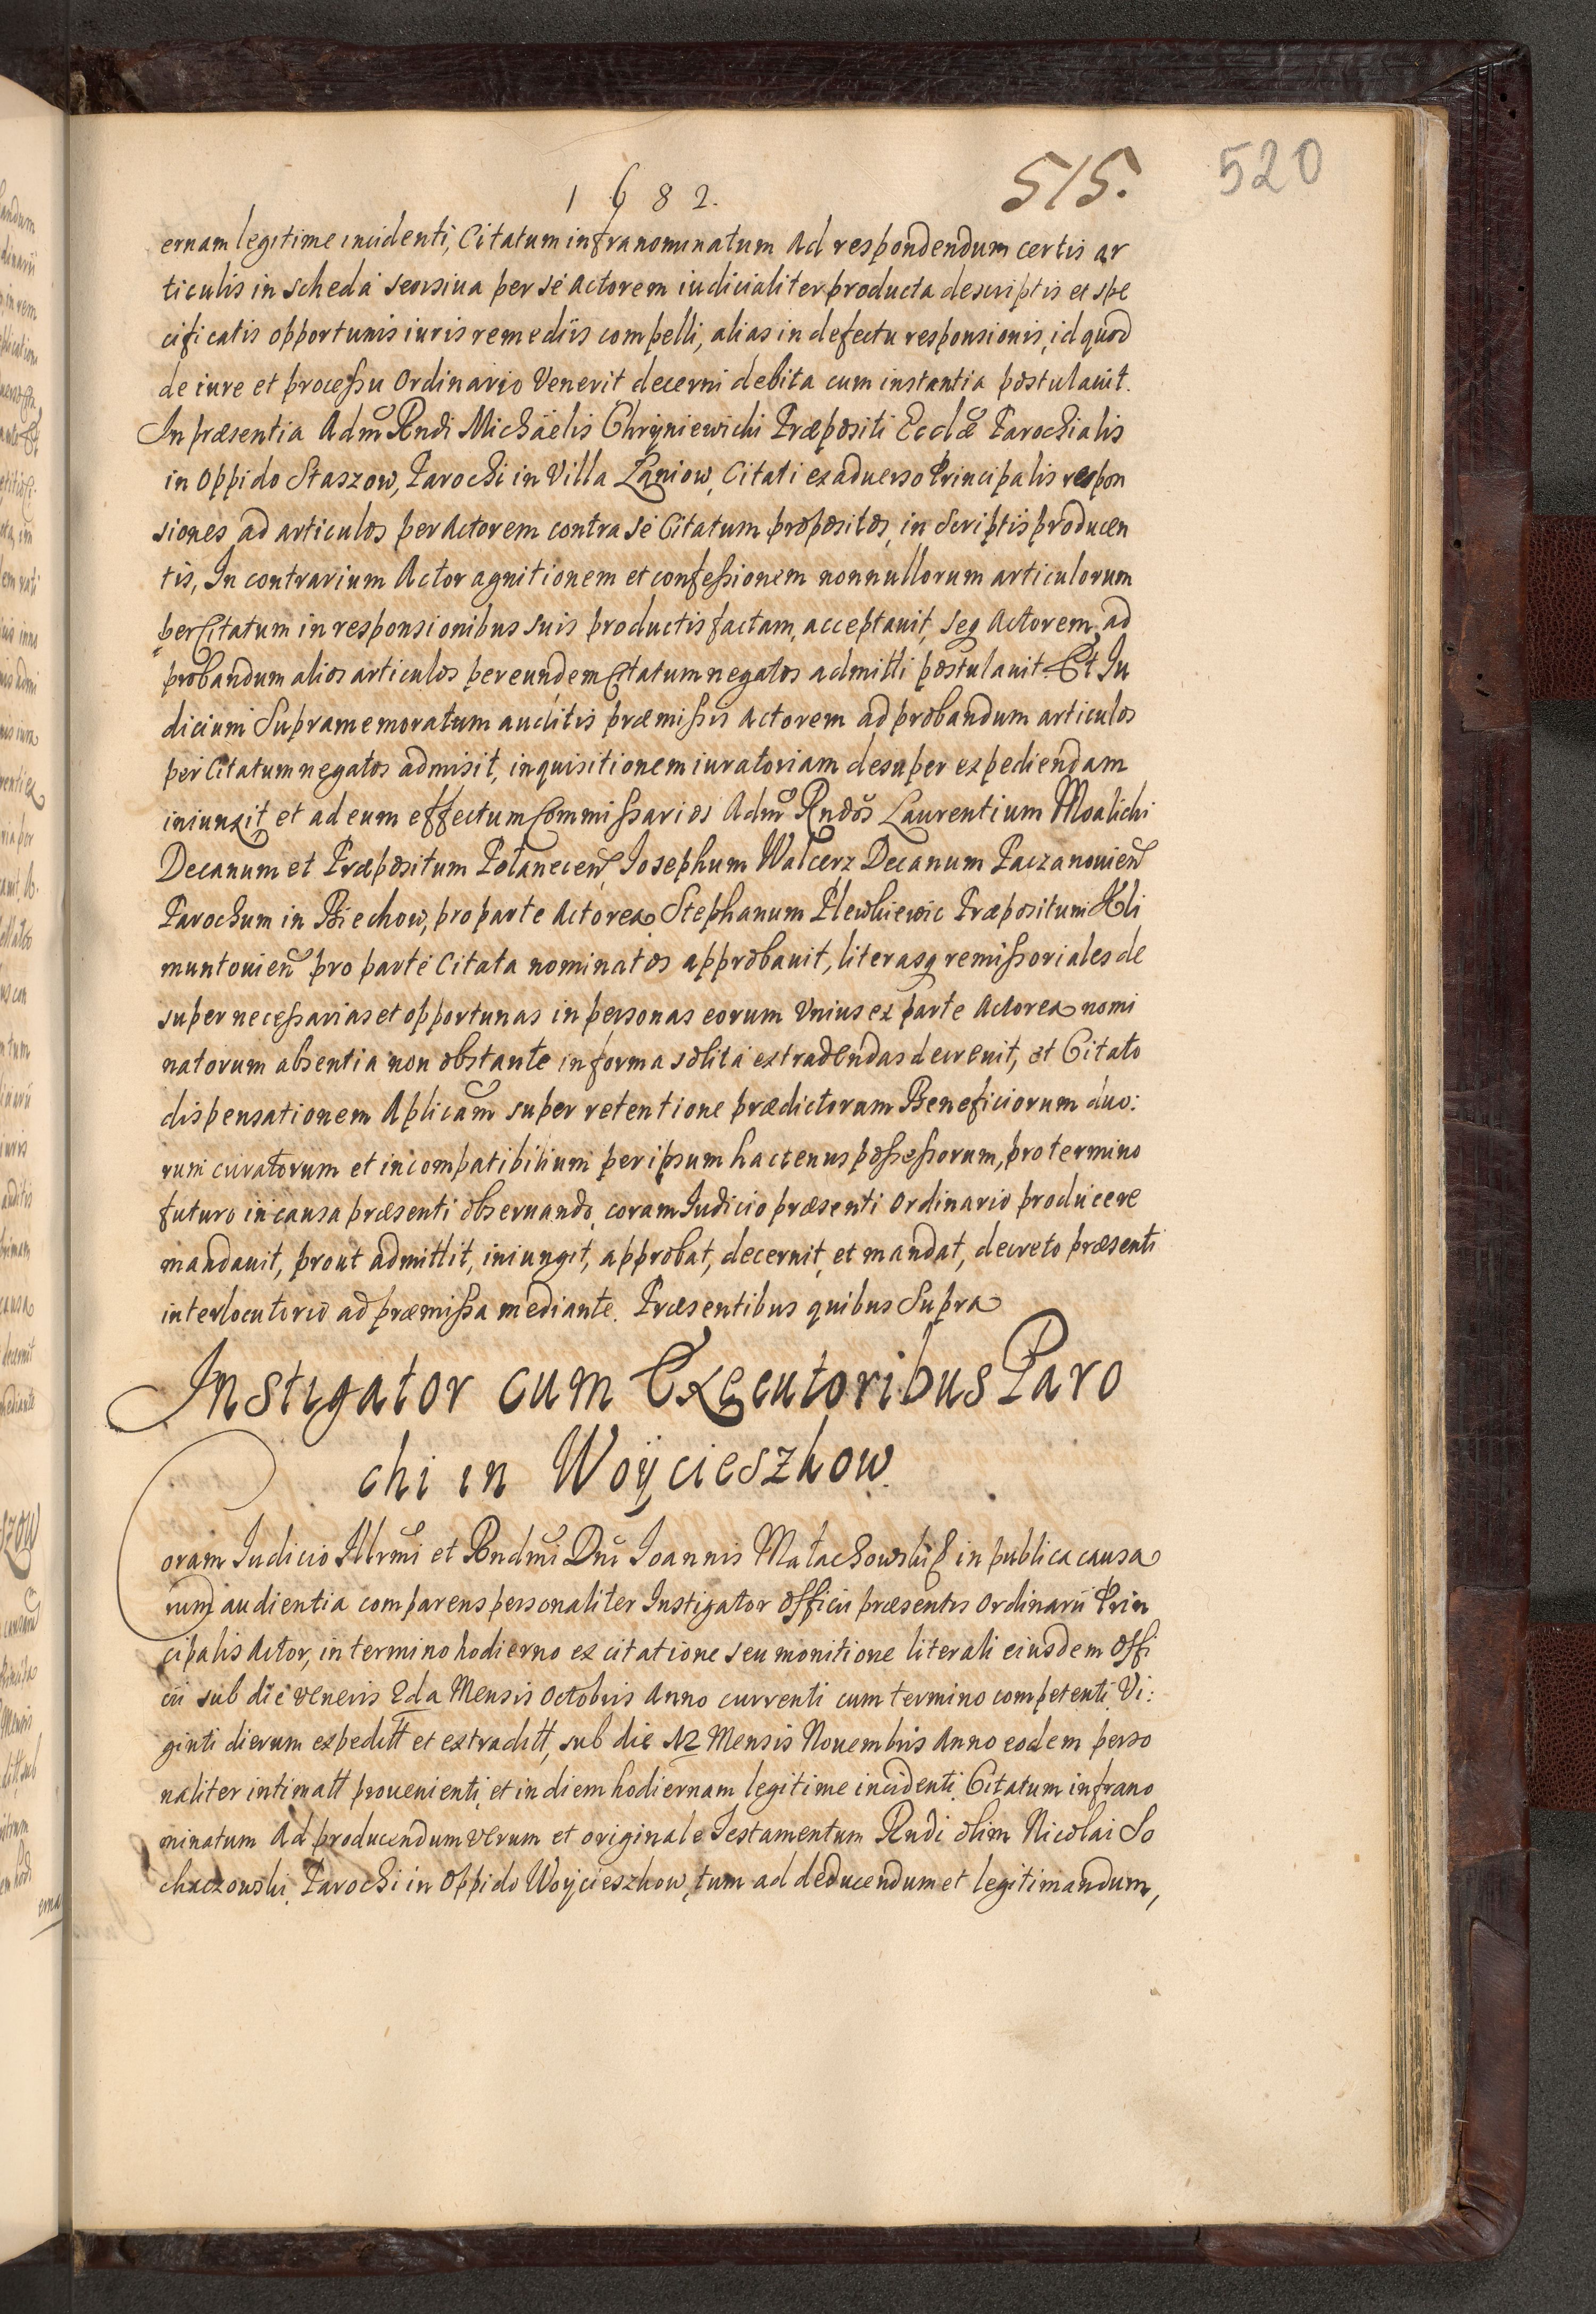 1682.
515.
520
ernam legitime incidenti, Citatum infranominatum Ad respondendum certis ar
ticulis in scheda seorsiua per se Actorem iudicialiter producta descriptis et spe
cificatis opportunis iuris remediis compelli, alias in defectu responsionis, id quod
de iure et processu Ordinario Venerit decerni debita cum instantia postulauit.
In præsentia Adm Rndi Michaelis Chryniewicki Præpositi Ecclæ Parochialis
in Oppido Staszow, Parochi in Villa Łąniow, Citati ex aduerso Principalis respon
siones ad articulos per Actorem contra se Citatum propositos, in Scriptis producen
tis, In contrarium Actor agnitionem et confessionem nonnullorum articulorum
per Citatum in responsionibus suis productis factam, acceptauit, seq Actorem, ad
probandum alios articulos per eundem Citatum negatos admitti postulauit. Et Iu
dicium Supramemoratum auditis præmissis Actorem ad probandum articulos
per Citatum negatos admisit, inquisitionem iuratoriam desuper expediendam
iniunxit et ad eum effectum Commissarios Adm Rndos Laurentium Moalicki
Decanum et Præpositum Połanecen, Iosephum Walcerz Decanum Paczanouien
Parochum in Biechow, pro parte Actorea Stephanum Plewkiewic Præpositum Kli
muntouien pro parte Citata nominatos approbauit, literasq remissoriales de
super necessarias et opportunas in personas eorum Vnius ex parte Actorea nomi
natorum absentia non obstante in forma solita extradendas decreuit, et Citato
dispensationem Aplicam super retentione prædictorum Beneficiorum duo:
rum curatorum et incompatibilium per ipsum hactenus possessorum, pro termino
futuro in causa præsenti obseruando, coram Iudicio præsenti Ordinario producere
mandauit, prout admittit, iniungit, approbat, decernit, et mandat, decreto præsenti
interlocutorio ad præmissa mediante. Præsentibus quibus Supra
Instigator cum Executoribus Paro
chi in Woÿcieszkow.
Coram Iudicio Illrmi et Rndmi Dni Ioannis Małachowski in publica causa
rum audientia comparens personaliter Instigator Officii præsentis Ordinarii Prin
cipalis Actor, in termino hodierno ex citatione seu monitione literali eiusdem Offi
cii sub die Veneris 2da Mensis Octobris Anno currenti cum termino competenti Vi:
ginti dierum expeditt et extraditt, sub die 12 Mensis Nouembris Anno eodem perso
naliter intimatt prouenienti, et in diem hodiernam legitime incidenti, Citatum infrano
minatum Ad producendum verum et originale Testamentum Rndi olim Nicolai So
chaczowski, Parochi in Oppido Woÿcieszkow, tum ad deducendum et legitimandum,